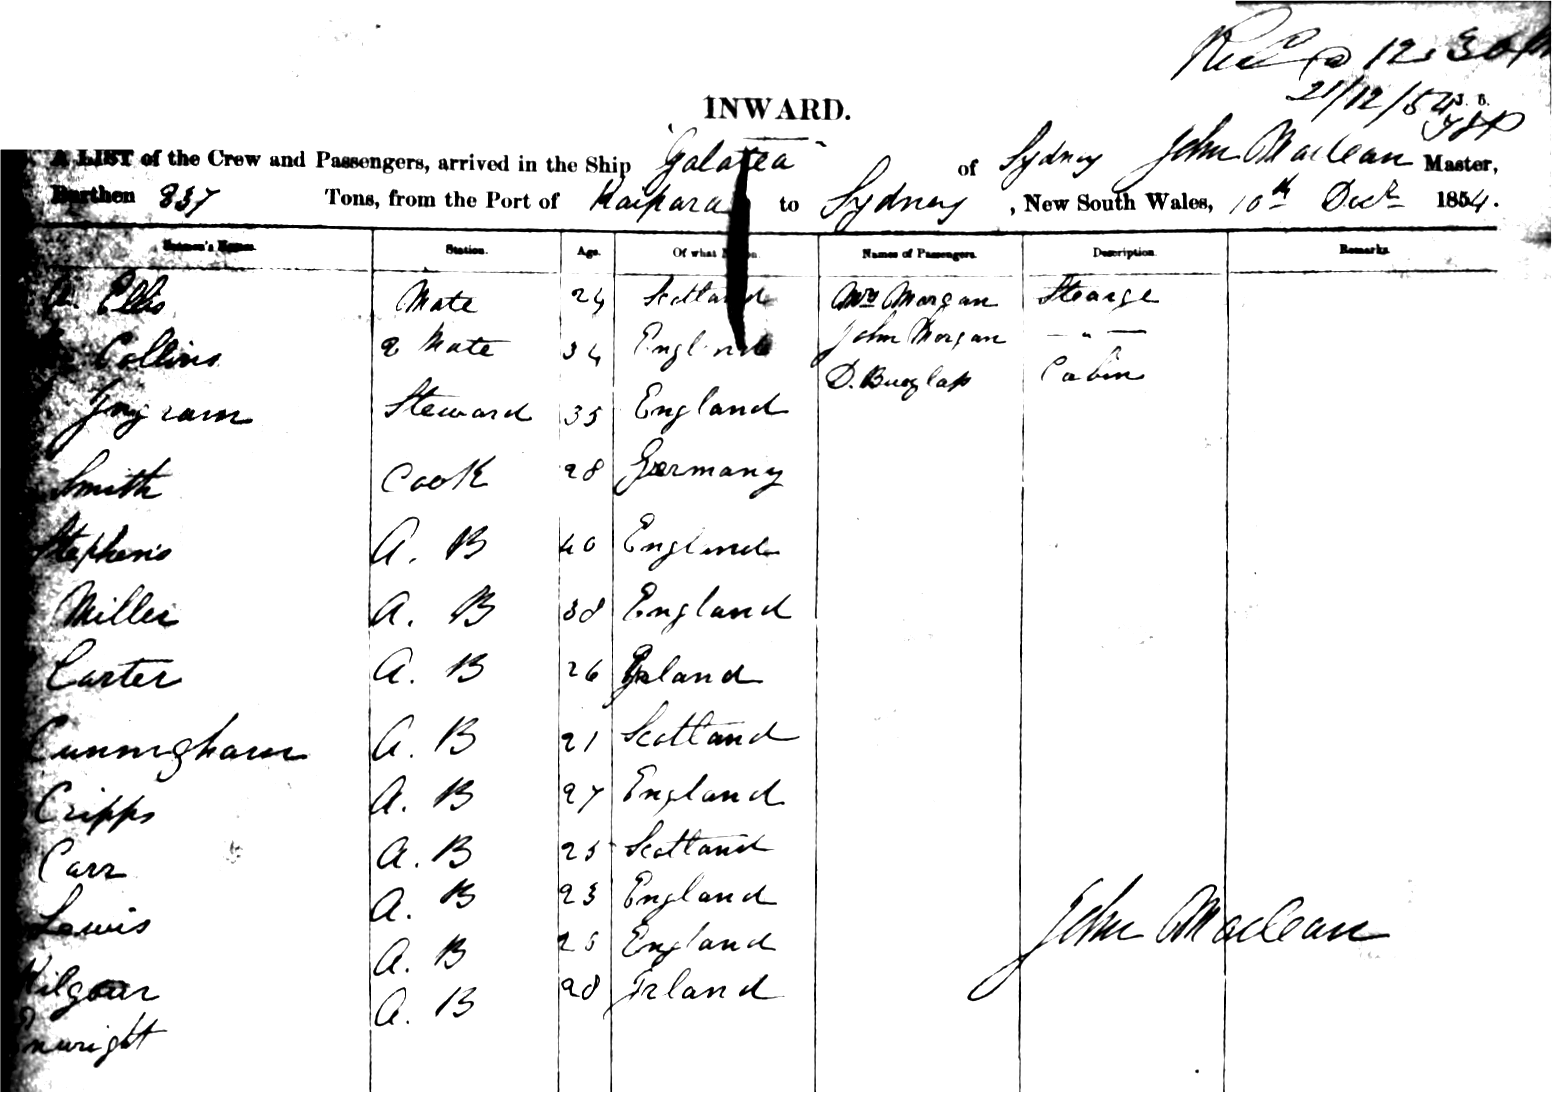 Recd @ 12.30 PM
21/12/54
INWARD.
A LIST of the Crew and Passengers, arrived in the Ship "Galatea" of Sydney John Maclean Master,
Burthen 237 Tons, from the Port of Kaipara to Sydney, New South Wales, 10th Decr 1854.
Seamen's Names. Station. Age. Of what Nation. Names of Passengers. Description. Remarks.
Ellis Mate 24 Scotland Wm Morgan Stearge
Collins 2 Mate 34 England John Morgan — " —
D. Cabin
Yngram Steward 35 England
Smith Cook 28 Germany
Stephens A. B 40 England
Miller A. B 38 England
Carter A. B 26
Cunningham A. B 21 Scotland
Cripps A. B 27 England
Carr A. B 25 Scotland
Lewis A. B 23 England
Kilgour A. B 25 England
A. B 28 Irland
John Maclean